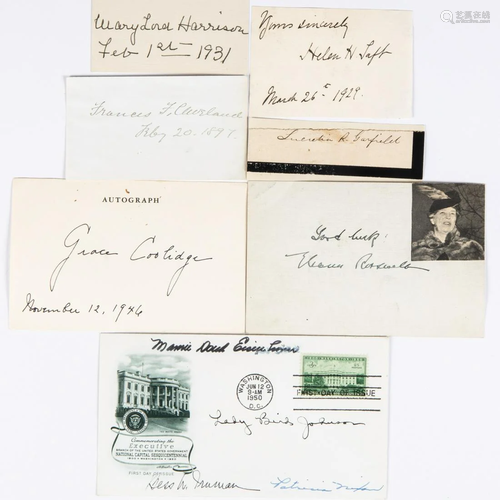 Mary Lord Harrison
Feb 1st 1931
Yours sincerely
Helen H. Taft
March 26th 1929.
Frances F. Cleveland
Feby 20. 1897.
Lucretia R. Garfield
AUTOGRAPH
Grace Coolidge
November 12, 1946
Good luck!
Eleanor Roosevelt
Mamie Doud Eisenhower
WASHINGTON
JUN 12
9-AM
1950
D.C.
FIRST DAY OF ISSUE
Lady Bird Johnson
Commemorating the
Executive
BRANCH OF THE UNITED STATES GOVERNMENT
NATIONAL CAPITAL SESQUICENTENNIAL
FIRST DAY OF ISSUE
Bess W. Truman
Patricia Nixon